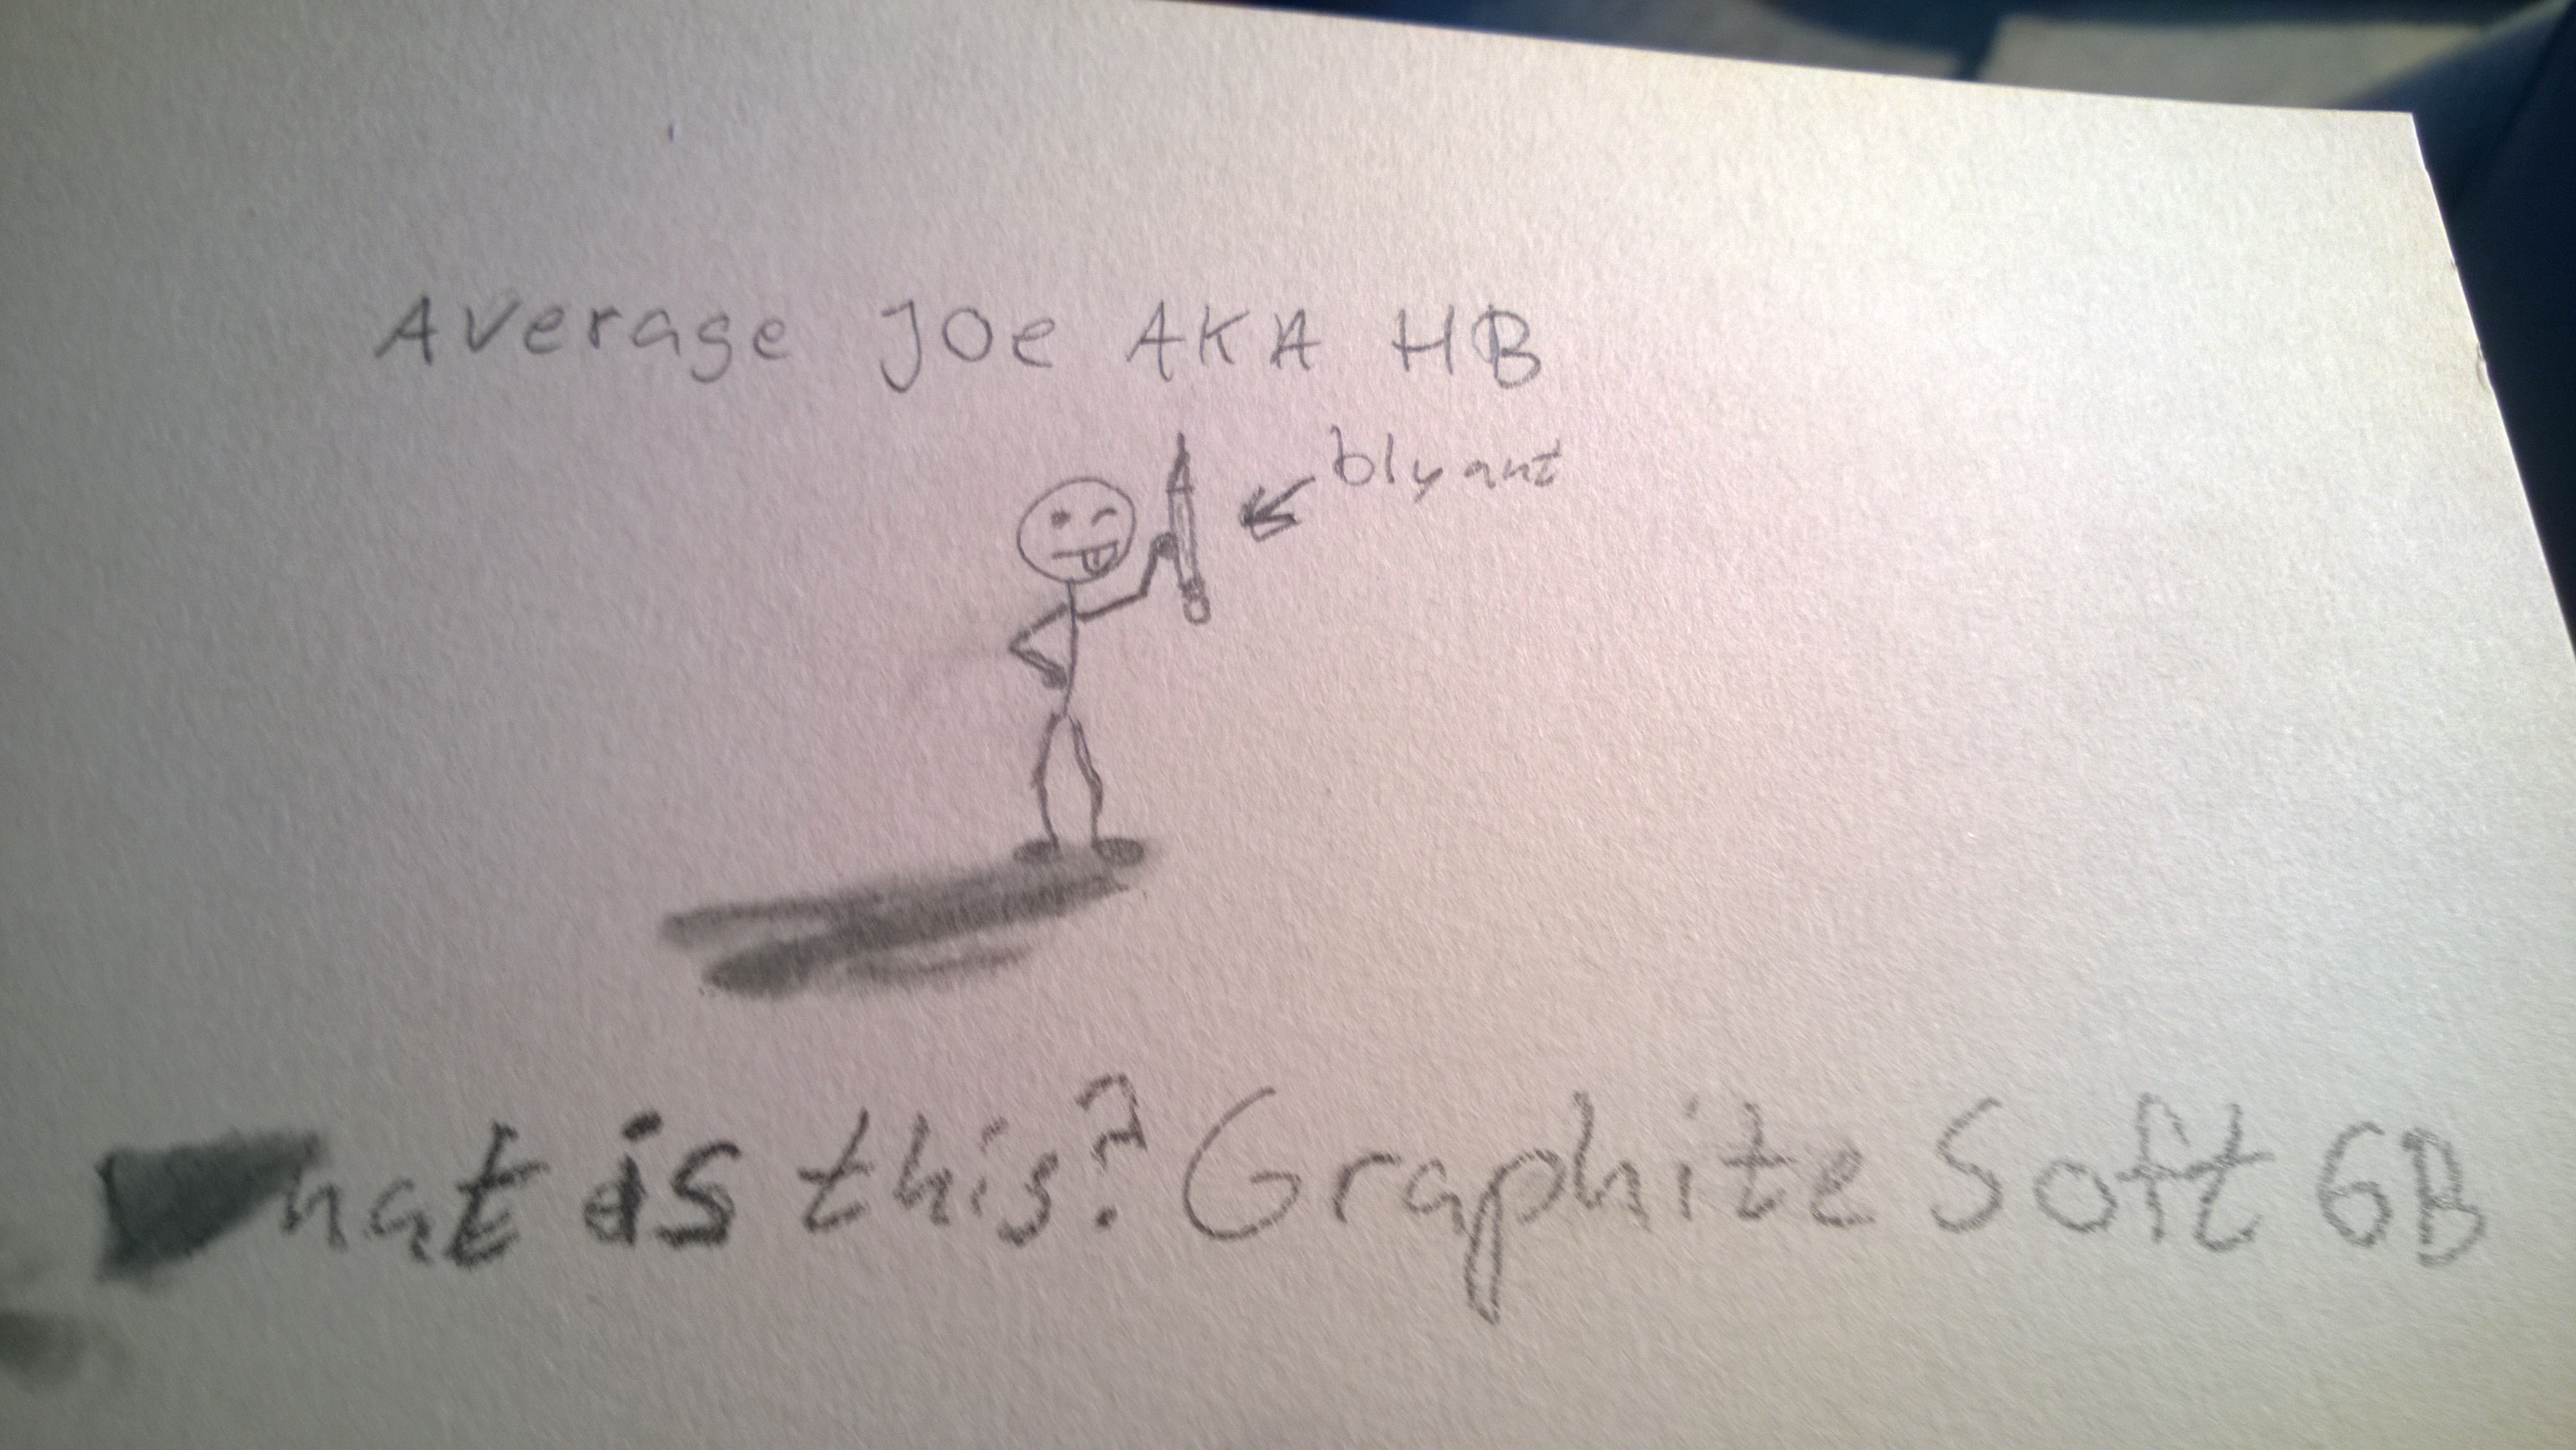 Average Joe AKA HB
blyant
What is this? Graphite Soft 6B